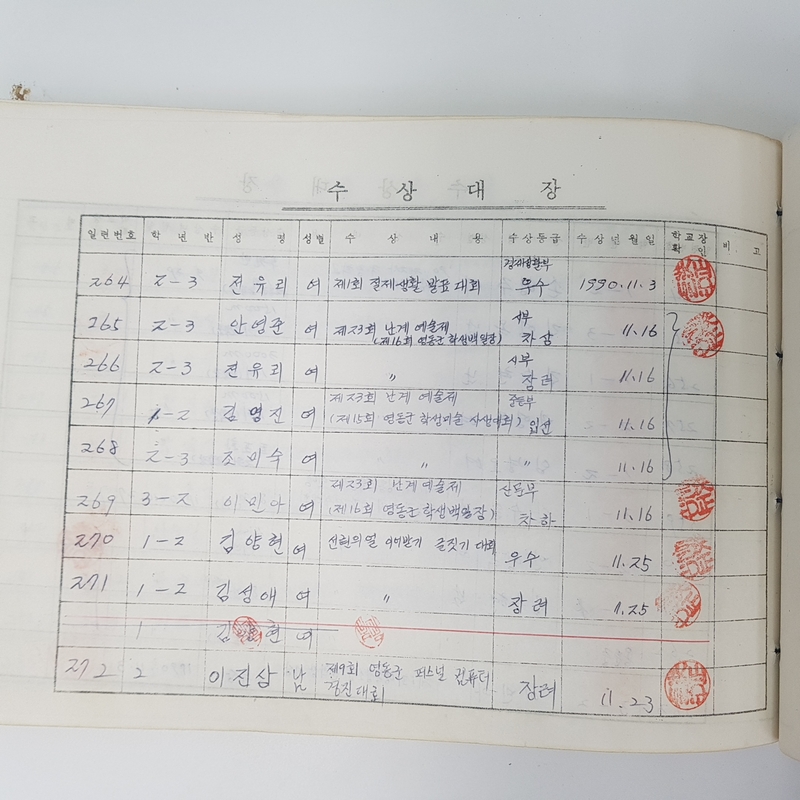 수 상 대 장
일련번호 학 년 반 성 명 성별 수 상 내 용 수상등급 수 상 년 월 일 학교장 확 인 비 고
264 2-3 전유리 여 제1회 절제생활 발표대회 우수 1990.11.3
265 2-3 안영준 여 제23회 난계 예술제 시부
(제16회 영동군 학생백일장) 차상 11.16
266 2-3 전유리 여 〃 시부 장려 11.16
267 1-2 김영진 여 제23회 난계 예술제 중등부
(제15회 영동군 학생미술 사생대회) 입선 11.16
268 2-3 조미숙 여 〃 〃 11.16
269 3-2 이민아 여 제23회 난계예술제 산문부
(제16회 영동군 학생백일장) 차하 11.16
270 1-2 김양현 여 선린의열 이어받기 글짓기 대회 우수 11.25
271 1-2 김성애 여 〃 장려 1.25
1 김 현 여
272 2 이진삼 남 제9회 영동군 퍼스널 컴퓨터
경진대회 장려 11.23